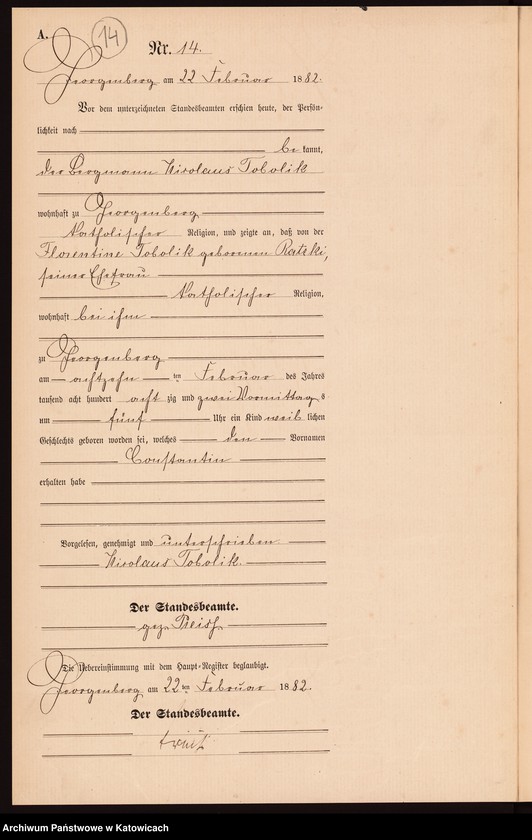 A.
14
Nr. 14.
Georgenberg am 22 Februar 1882.
Vor dem unterzeichneten Standesbeamten erschien heute, der Persön-
lichkeit nach
be kannt,
der Bergmann Nicolaus Tobolik
wohnhaft zu Georgenberg
katholischer Religion, und zeigte an, daß von der
Florentine Tobolik geborenen Ratzki,
seiner Ehefrau
katholischer Religion,
wohnhaft bei ihm
zu Georgenberg
am achtzehn ten Februar des Jahres
tausend acht hundert acht zig und zwei Vormittag s
um fünf Uhr ein Kind weib lichen
Geschlechts geboren worden sei, welches den Vornamen
Constantin
erhalten habe
Vorgelesen, genehmigt und unterschrieben
Nicolaus Tobolik.
Der Standesbeamte.
gez.
Die Uebereinstimmung mit dem Haupt-Register beglaubigt.
Georgenberg am 22 ten Februar 1882.
Der Standesbeamte.
Archiwum Państwowe w Katowicach